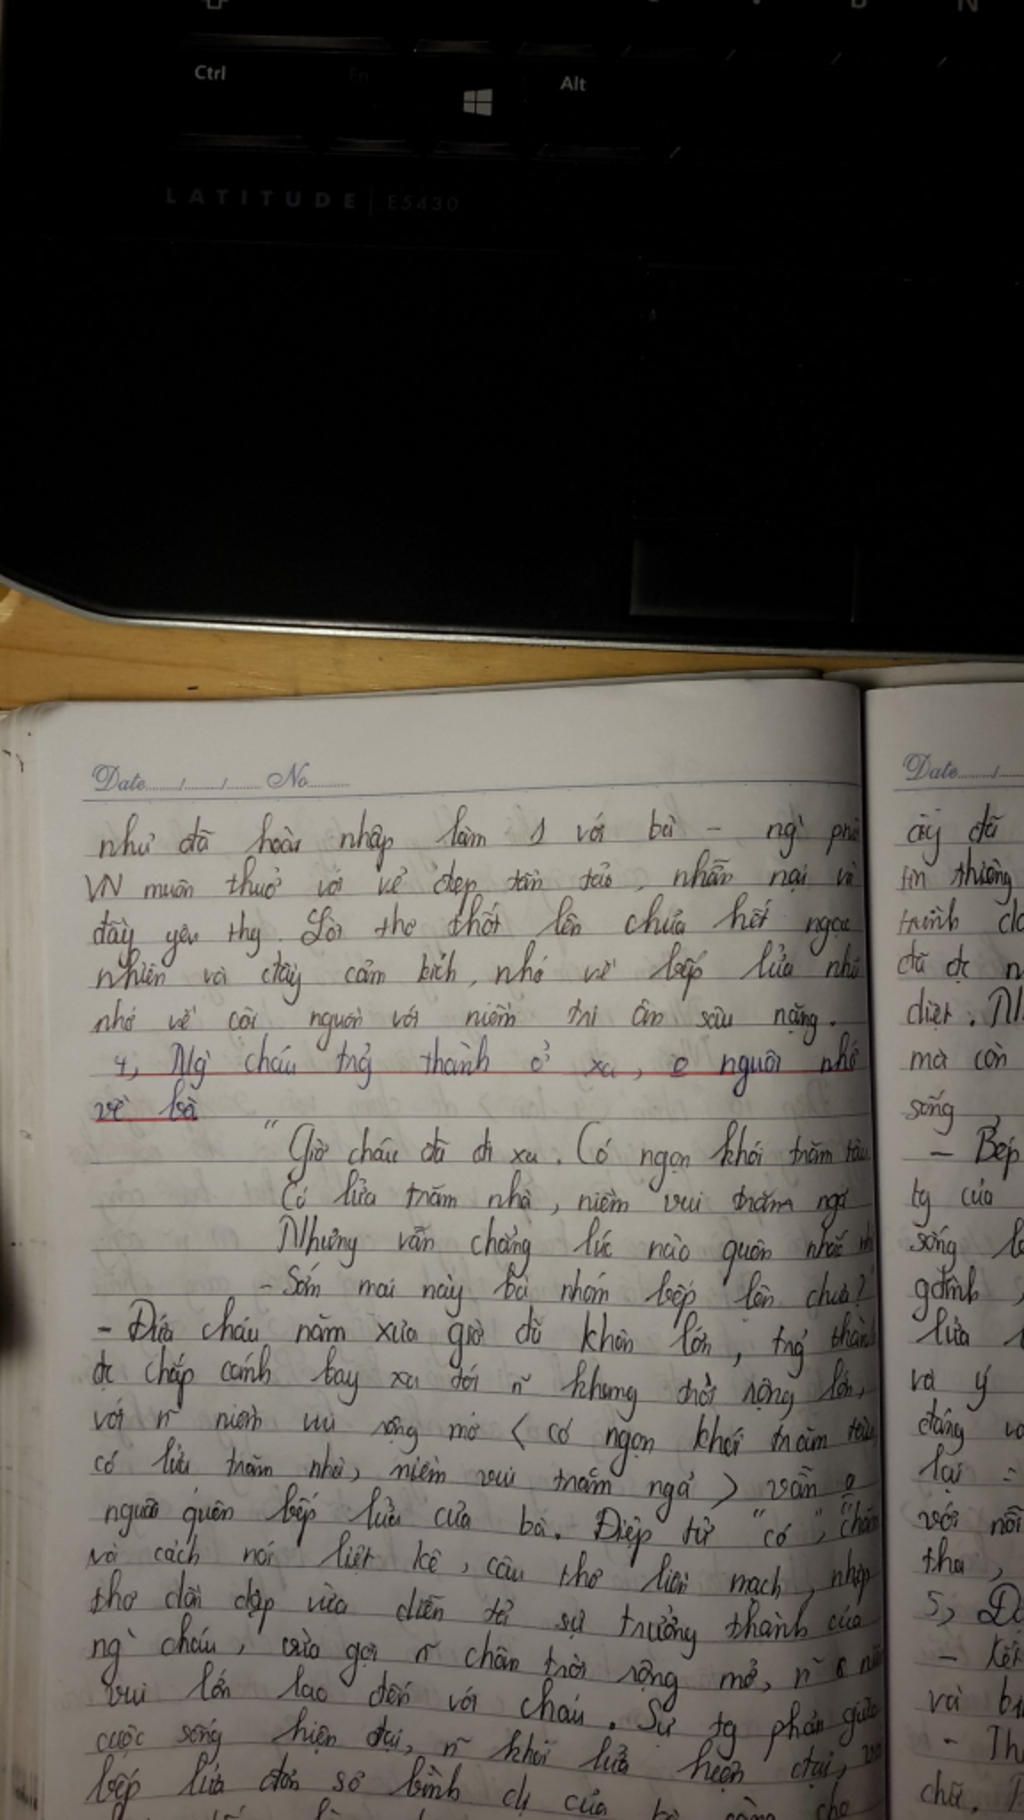 Ctrl
Fn
Alt
LATITUDE | E5430
Date...../...../..... No.........
như đã hoàn nhập làm 1 với bà - ng`
VN muôn thuở với vẻ đẹp tần tảo, nhẫn nại và
đầy yêu thg. Lời thơ thốt lên chứa hết ngạc
nhiên và đầy cảm kích, nhớ về bếp lửa
nhớ về cội nguồn với niềm tri ân sâu nặng.
4, Ng` cháu trg thành ở xa, o nguôi nhớ
về bà
"Giờ cháu đã đi xa. Có ngọn khói trăm tàu
Có lửa trăm nhà, niềm vui trăm ngả
Nhưng vẫn chẳng lúc nào quên nhắc
- Sớm mai này bà nhóm bếp lên chưa?"
- Đứa cháu năm xưa giờ đã khôn lớn, trg thành
đc chắp cánh bay xa tới n~ khung trời rộng lớn,
với n~ niềm vui rộng mở < có ngọn khói trăm tàu,
có lửa trăm nhà, niềm vui trăm ngả > vẫn o
nguôi quên bếp lửa của bà. Điệp từ "có",
và cách nói liệt kê, câu thơ liền mạch, nhịp
thơ dồn dập vừa diễn tả sự trưởng thành của
ng` cháu, vừa gợi n~ chân trời rộng mở, n~
vui lớn lao đến với cháu. Sự tg phản giữa
cuộc sống hiện đại, n~ khói lửa hiện đại,
bếp lửa đơn sơ bình dị của bà
Date...../.....
ấy đã
tin thường
trình
đã đc
diệt.
mà còn
sống
- Bếp
tg của
sống
gđình
lửa
và ý
đáng
lại
với nỗi
tha,
5,
- Kết
và
-
chữ.